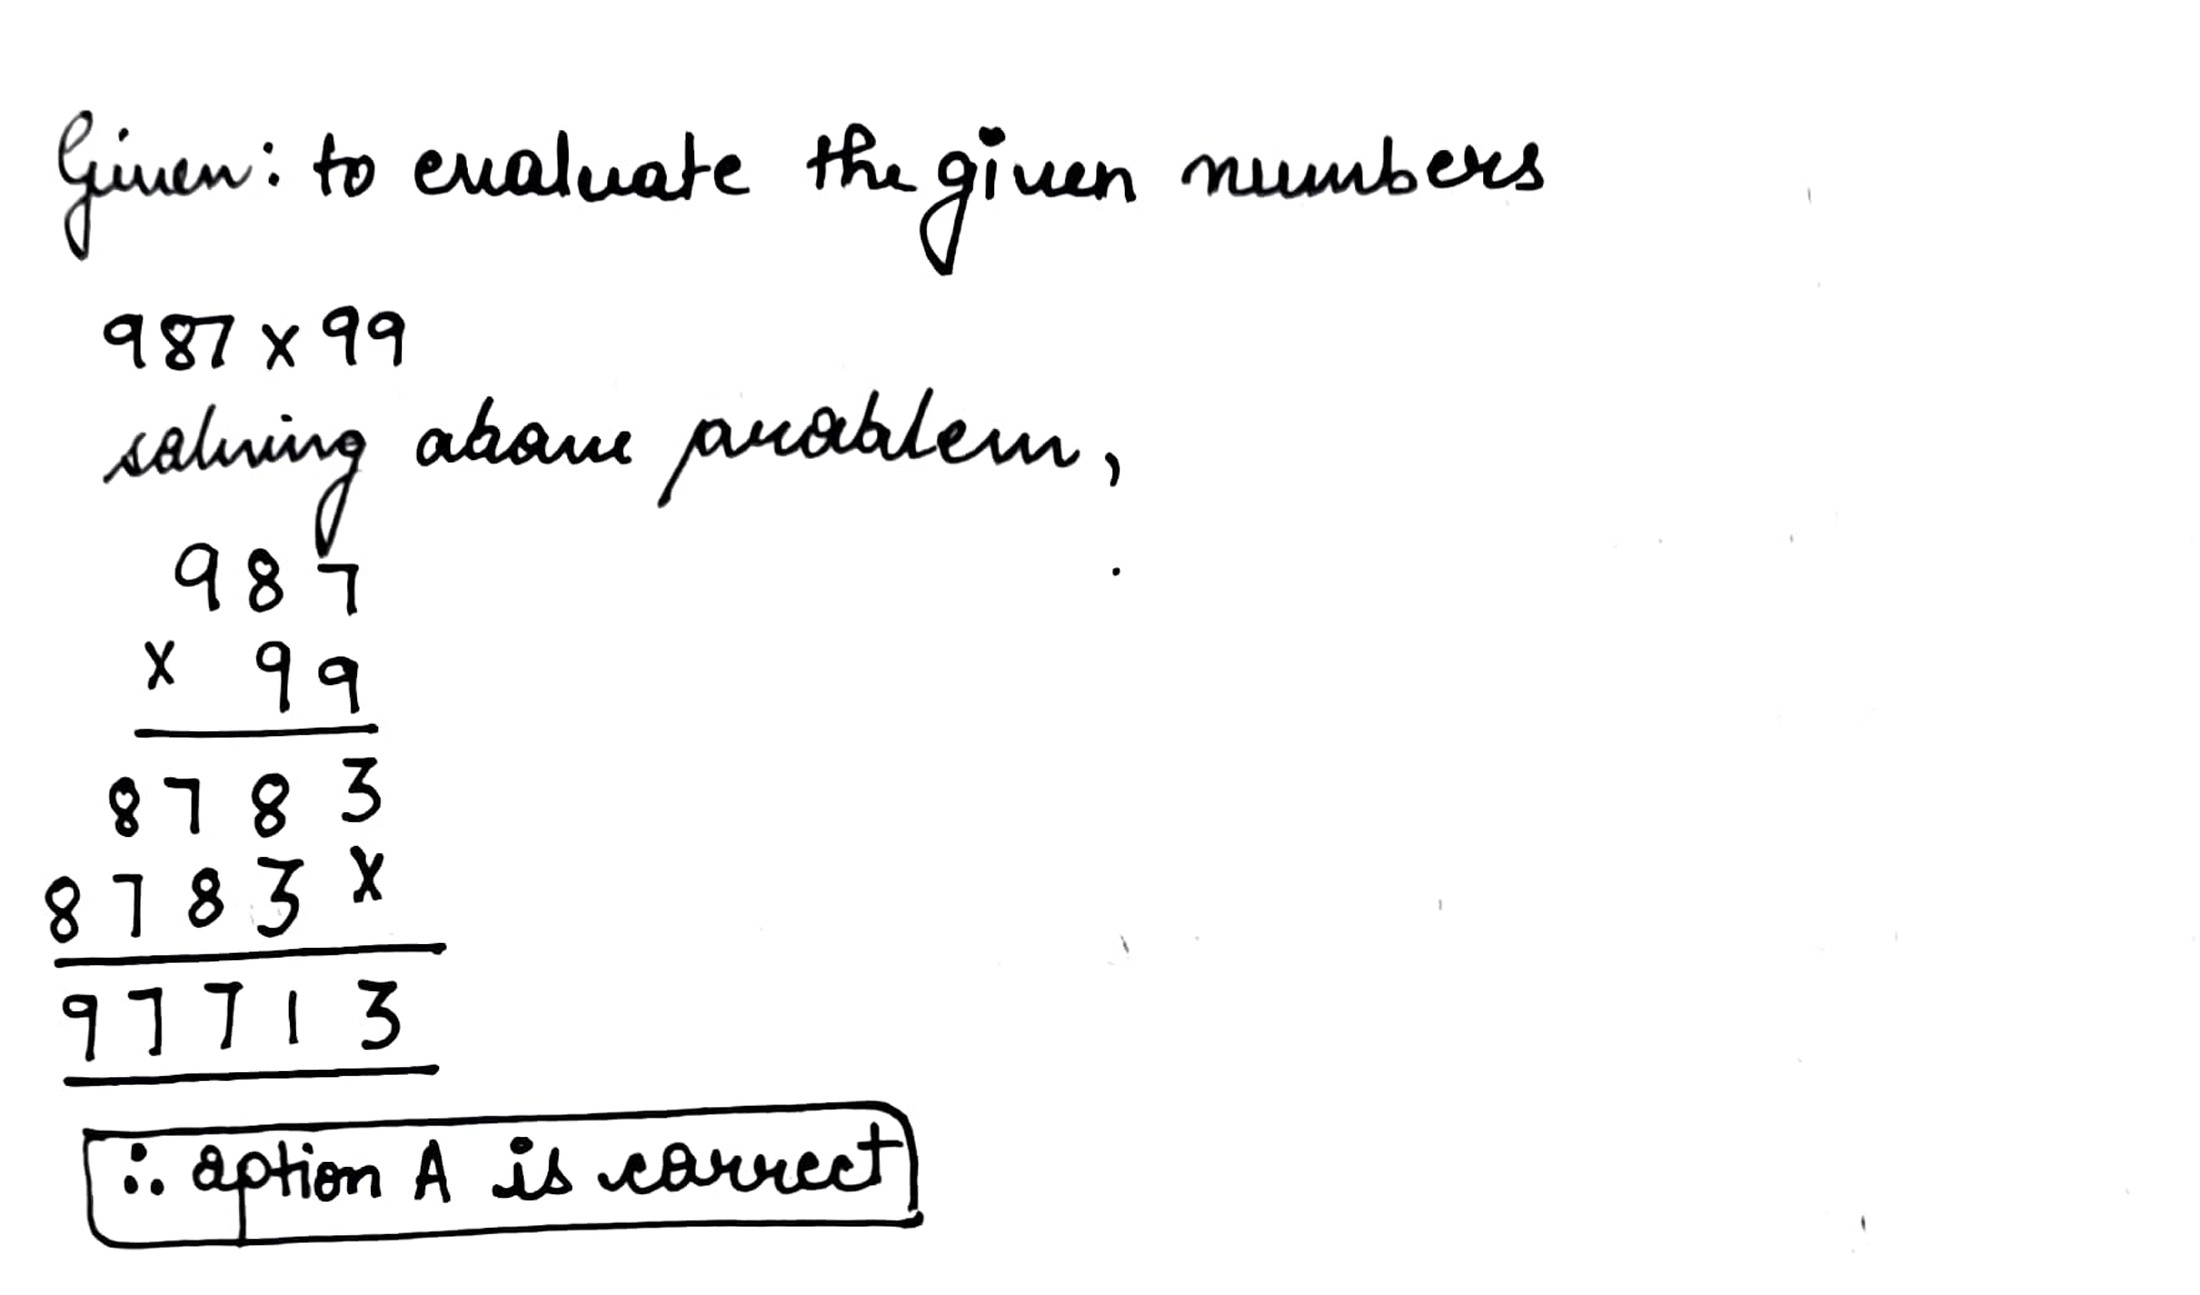 Given: to evaluate the given numbers
987 x 99
solving above problem,
987
x 99
8783
8783x
97713
∴ option A is correct